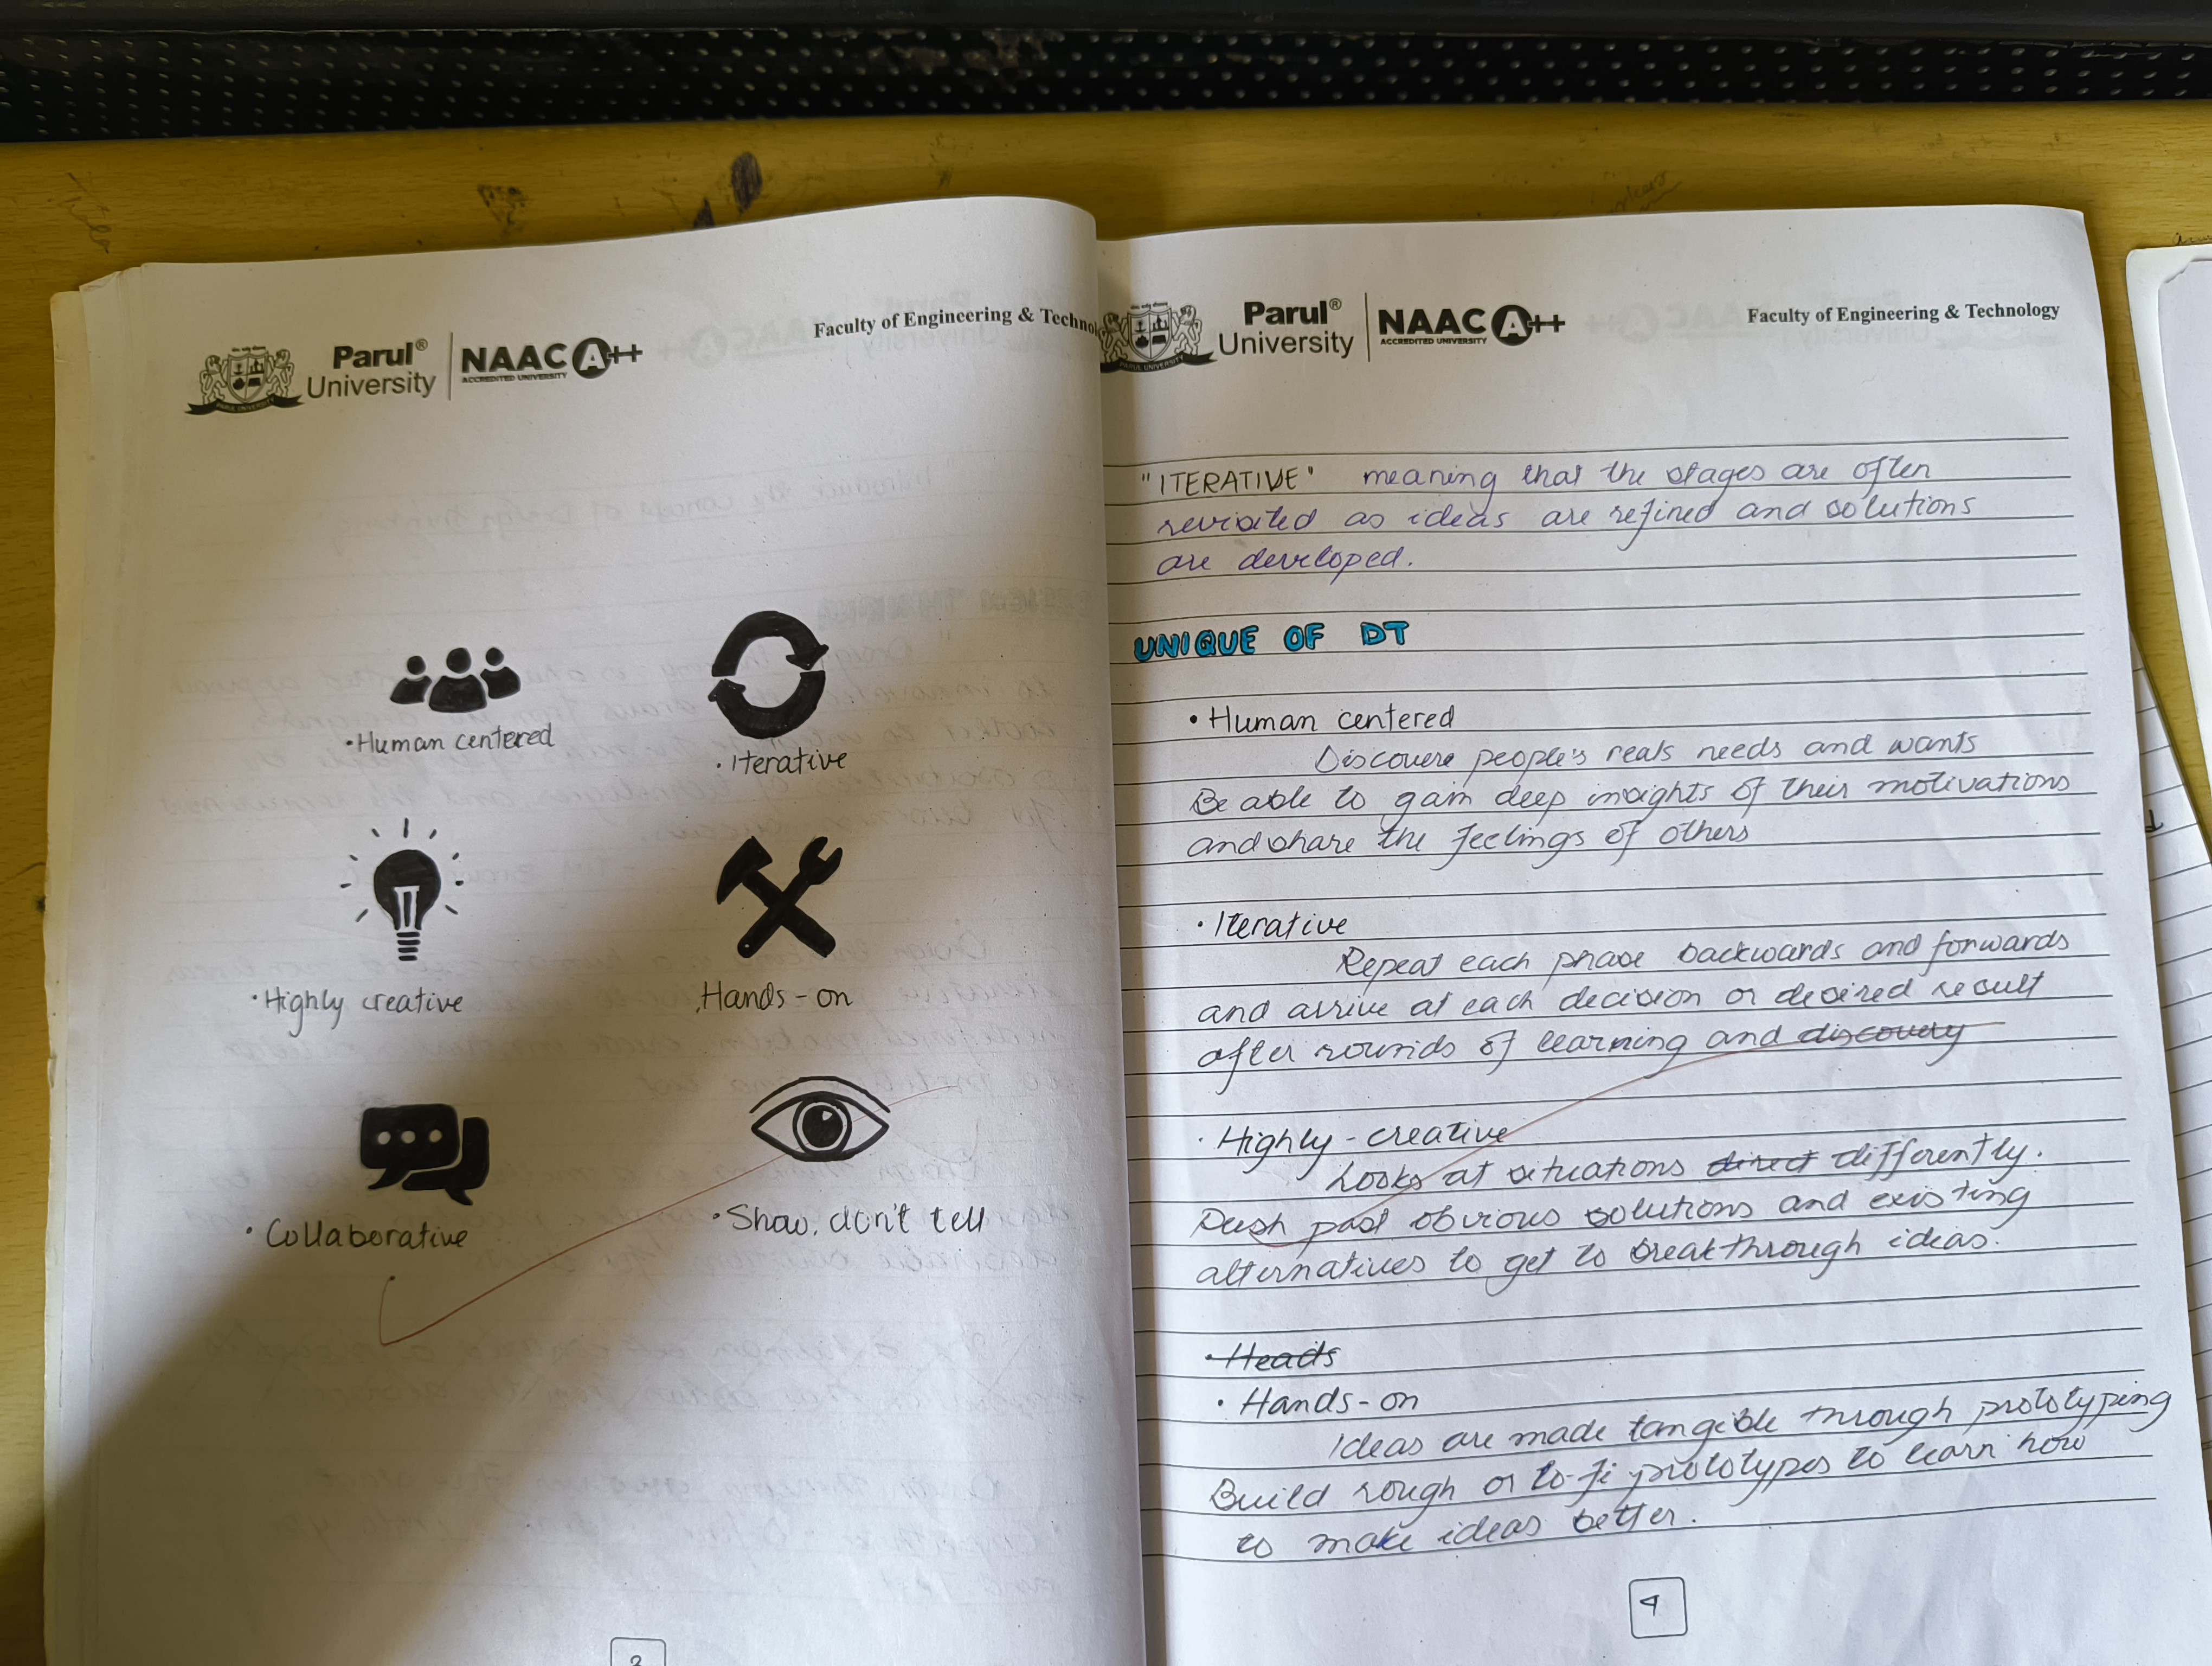 Parul®
University
NAAC A++
ACCREDITED UNIVERSITY
Faculty of Engineering & Techno
• Human centered
• Iterative
• Highly creative
. Hands-on
• Collaborative
• Show, don't tell
3
Parul®
University
NAAC A++
ACCREDITED UNIVERSITY
PARUL UNIVERSITY
Faculty of Engineering & Technology
"ITERATIVE" meaning that the stages are often
revisited as ideas are refined and solutions
are developed.
UNIQUE OF DT
• Human centered
Discovere people's reals needs and wants
Be able to gain deep insights of their motivations
and share the feelings of others
• Iterative
Repeat each phase backwards and forwards
and arrive at each decision or desired result
after rounds of learning and discovery
• Highly-creative
Looks at situations direct differently.
Push past obvious solutions and existing
alternatives to get to breakthrough ideas.
• Heads
• Hands-on
Ideas are made tangible through prototyping
Build rough or lo-fi prototypes to learn how
to make ideas better.
4